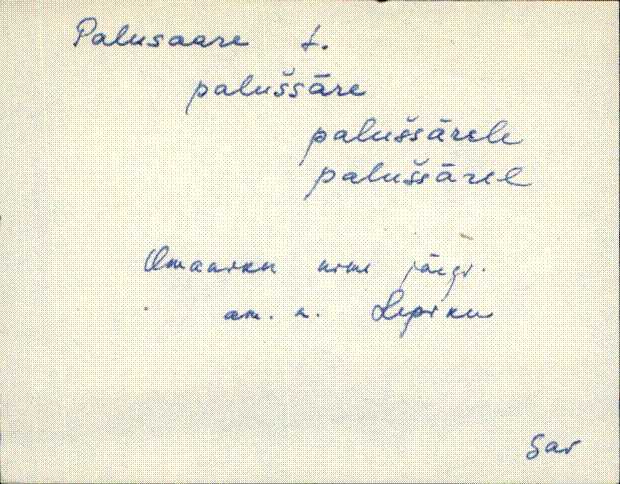 Palusaare t.
palušsāre
palušsārele
palušsārel
Omaniku nime järgi.
am. n. Lepiku
Sar